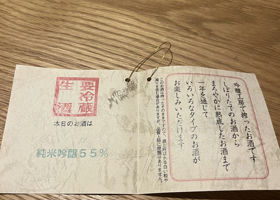 要冷蔵
生酒
本日のお酒は
純米吟醸55%
吟醸工房で搾ったお酒です
しぼりたてのお酒から
まろやかに熟成したお酒まで
一年を通じて
いろいろなタイプのお酒が
お楽しみいただけます